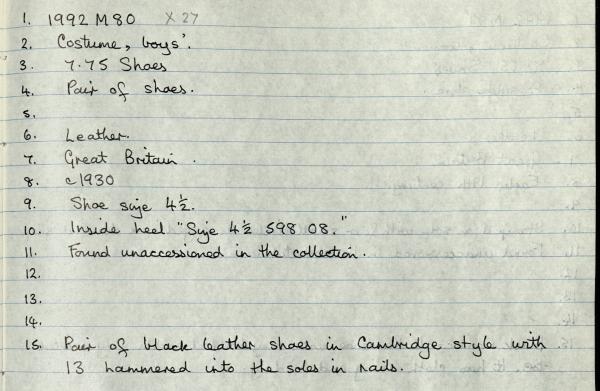 1. 1992 M80 X 27
2. Costume, boys'.
3. 7.75 Shoes
4. Pair of shoes.
5.
6. Leather.
7. Great Britain.
8. c1930
9. Shoe size 4½.
10. Inside heel "Size 4½ 598 08."
11. Found unaccessioned in the collection.
12.
13.
14.
15. Pair of black leather shoes in Cambridge style with
13 hammered into the soles in nails.